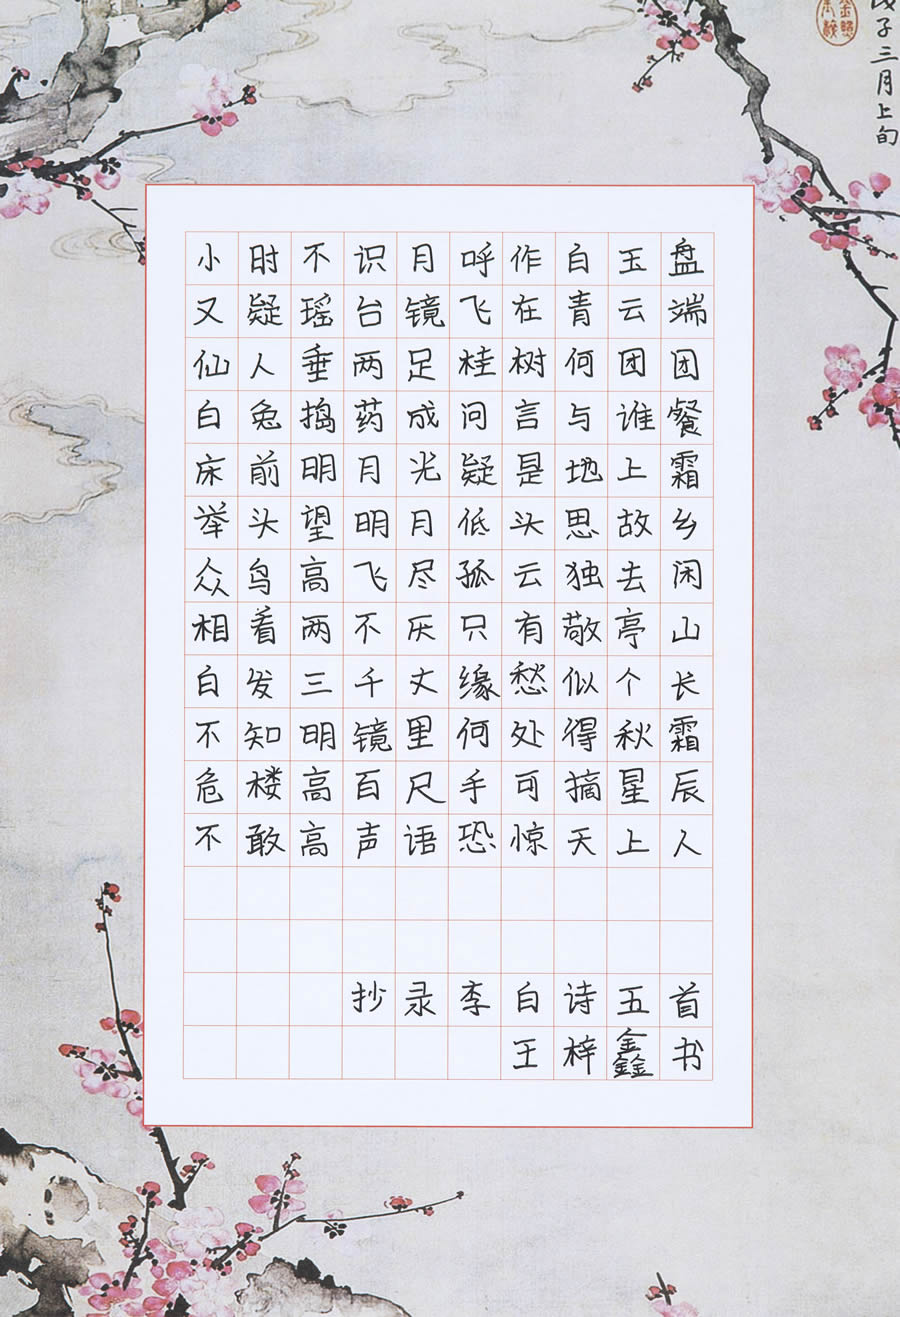 小时不识月呼作白玉盘
又疑瑶台镜飞在青云端
仙人垂两足桂树何团团
白兔捣药成问言与谁餐
床前明月光疑是地上霜
举头望明月低头思故乡
众鸟高飞尽孤云独去闲
相看两不厌只有敬亭山
白发三千丈缘愁似个长
不知明镜里何处得秋霜
危楼高百尺手可摘星辰
不敢高声语恐惊天上人
抄录李白诗五首
王梓鑫书
子三月上旬